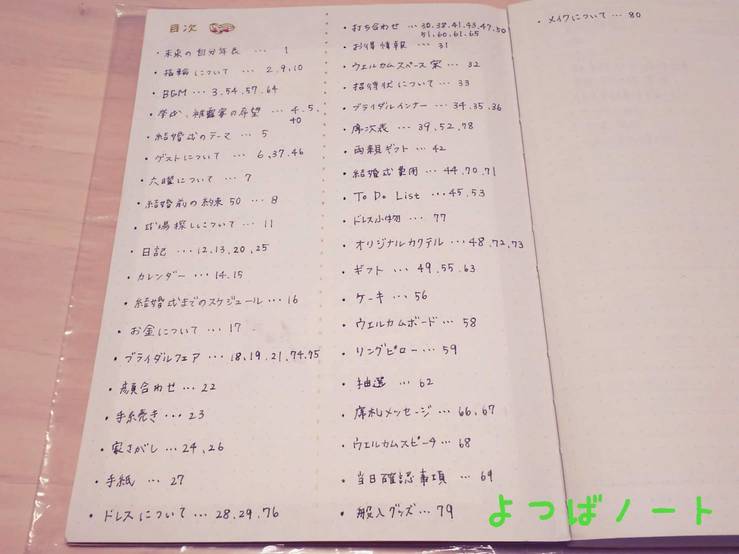 目次
・未来の自分年表 … 1
・指輪について … 2.9.10
・BGM … 3.54.57.64
・挙式、披露宴の希望 … 4.5.
40
・結婚式のテーマ … 5
・ゲストについて … 6.37.46
・六曜について … 7
・結婚前の約束50 … 8
・式場探しについて … 11
・日記 … 12.13.20.25
・カレンダー … 14.15
・結婚式までのスケジュール … 16
・お金について … 17
・ブライダルフェア … 18.19.21.74.75
・顔合わせ … 22
・手続き … 23
・家さがし … 24.26
・手紙 … 27
・ドレスについて … 28.29.76
・打ち合わせ … 30.38.41.43.47.50
51.60.61.65
・お得情報 … 31
・ウェルカムスペース案 … 32
・招待状について … 33
・ブライダルインナー … 34.35.36
・席次表 … 39.52.78
・両親ギフト … 42
・結婚式費用 … 44.70.71
・To Do List … 45.53
・ドレス小物 … 77
・オリジナルカクテル … 48.72.73
・ギフト … 49.55.63
・ケーキ … 56
・ウェルカムボード … 58
・リングピロー … 59
・抽選 … 62
・席札メッセージ … 66.67
・ウェルカムスピーチ … 68
・当日確認事項 … 69
・搬入グッズ … 79
・メイクについて … 80
よつばノート